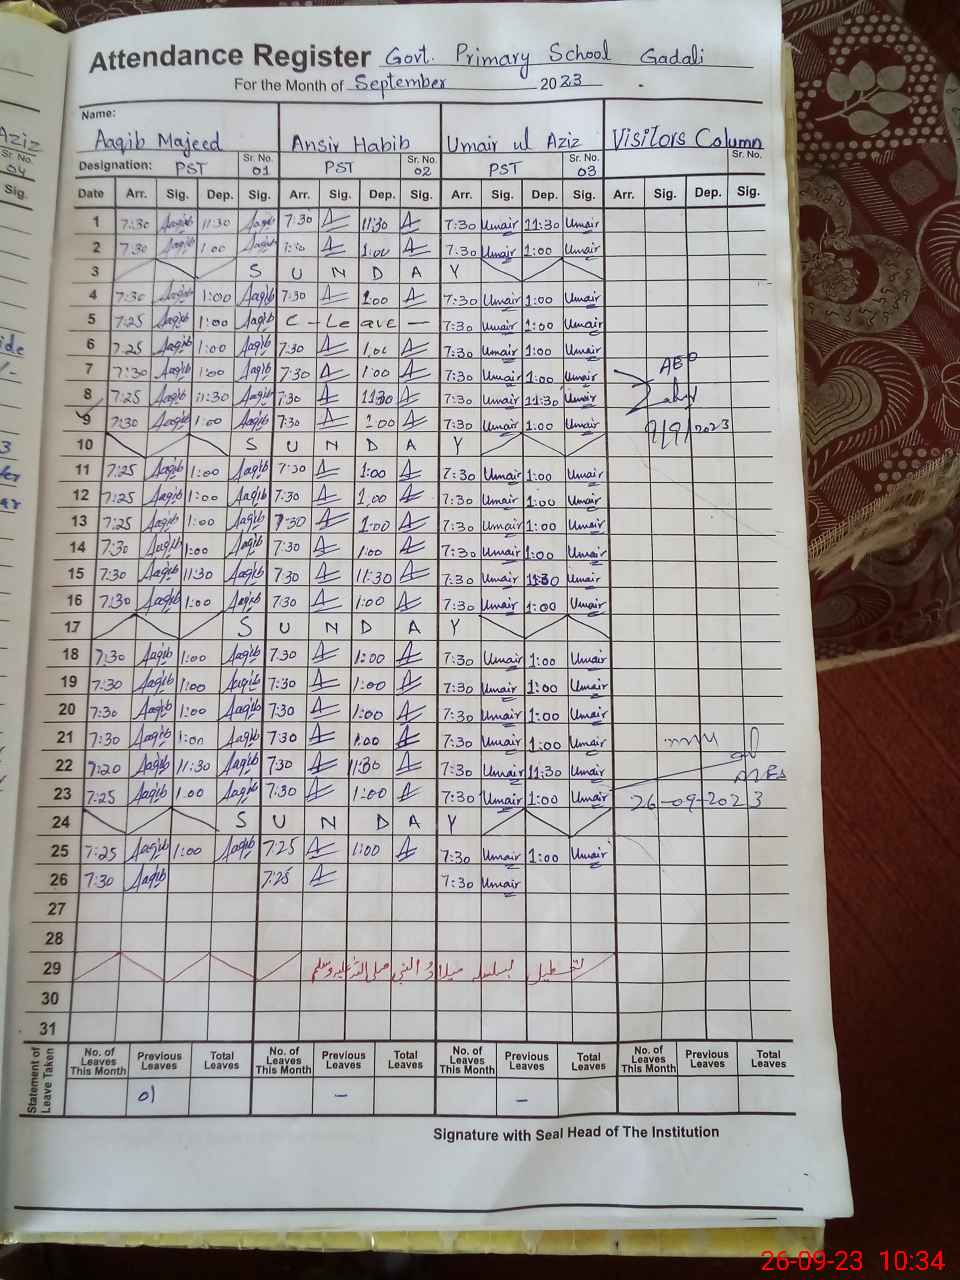 Attendance Register Govt. Primary School Gadali
For the Month of September 2023
Name:
Aaqib Majeed Ansir Habib Umair ul Aziz Visitors Column
Designation: PST Sr. No. 01 PST Sr. No. 02 PST Sr. No. 03 Sr. No.
Date Arr. Sig. Dep. Sig. Arr. Sig. Dep. Sig. Arr. Sig. Dep. Sig. Arr. Sig. Dep. Sig.
1 7:30 Aaqib 11:30 Aaqib 7:30 11:30 7:30 Umair 11:30 Umair
2 7:30 Aaqib 1:00 Aaqib 7:30 1:00 7:30 Umair 1:00 Umair
3 S U N D A Y
4 7:30 Aaqib 1:00 Aaqib 7:30 1:00 7:30 Umair 1:00 Umair
5 7:25 Aaqib 1:00 Aaqib C - Leave - 7:30 Umair 1:00 Umair
6 7:25 Aaqib 1:00 Aaqib 7:30 1:00 7:30 Umair 1:00 Umair
7 7:30 Aaqib 1:00 Aaqib 7:30 1:00 7:30 Umair 1:00 Umair AEO
8 7:25 Aaqib 11:30 Aaqib 7:30 11:30 7:30 Umair 11:30 Umair
9 7:30 Aaqib 1:00 Aaqib 7:30 1:00 7:30 Umair 1:00 Umair 9/9/2023
10 S U N D A Y
11 7:25 Aaqib 1:00 Aaqib 7:30 1:00 7:30 Umair 1:00 Umair
12 7:25 Aaqib 1:00 Aaqib 7:30 1:00 7:30 Umair 1:00 Umair
13 7:25 Aaqib 1:00 Aaqib 7:30 1:00 7:30 Umair 1:00 Umair
14 7:30 Aaqib 1:00 Aaqib 7:30 1:00 7:30 Umair 1:00 Umair
15 7:30 Aaqib 11:30 Aaqib 7:30 11:30 7:30 Umair 11:30 Umair
16 7:30 Aaqib 1:00 Aaqib 7:30 1:00 7:30 Umair 1:00 Umair
17 S U N D A Y
18 7:30 Aaqib 1:00 Aaqib 7:30 1:00 7:30 Umair 1:00 Umair
19 7:30 Aaqib 1:00 Aaqib 7:30 1:00 7:30 Umair 1:00 Umair
20 7:30 Aaqib 1:00 Aaqib 7:30 1:00 7:30 Umair 1:00 Umair
21 7:30 Aaqib 1:00 Aaqib 7:30 1:00 7:30 Umair 1:00 Umair
22 7:20 Aaqib 11:30 Aaqib 7:30 11:30 7:30 Umair 11:30 Umair
23 7:25 Aaqib 1:00 Aaqib 7:30 1:00 7:30 Umair 1:00 Umair 26-09-2023
24 S U N D A Y
25 7:25 Aaqib 1:00 Aaqib 7:25 1:00 7:30 Umair 1:00 Umair
26 7:30 Aaqib 7:25 7:30 Umair
27
28
29 تعطیل بسلسلہ میلاد النبی صلی اللہ علیہ وسلم
30
31
Statement of Leave Taken
No. of Leaves This Month Previous Leaves Total Leaves No. of Leaves This Month Previous Leaves Total Leaves No. of Leaves This Month Previous Leaves Total Leaves No. of Leaves This Month Previous Leaves Total Leaves
01 - -
Signature with Seal Head of The Institution
26-09-23 10:34